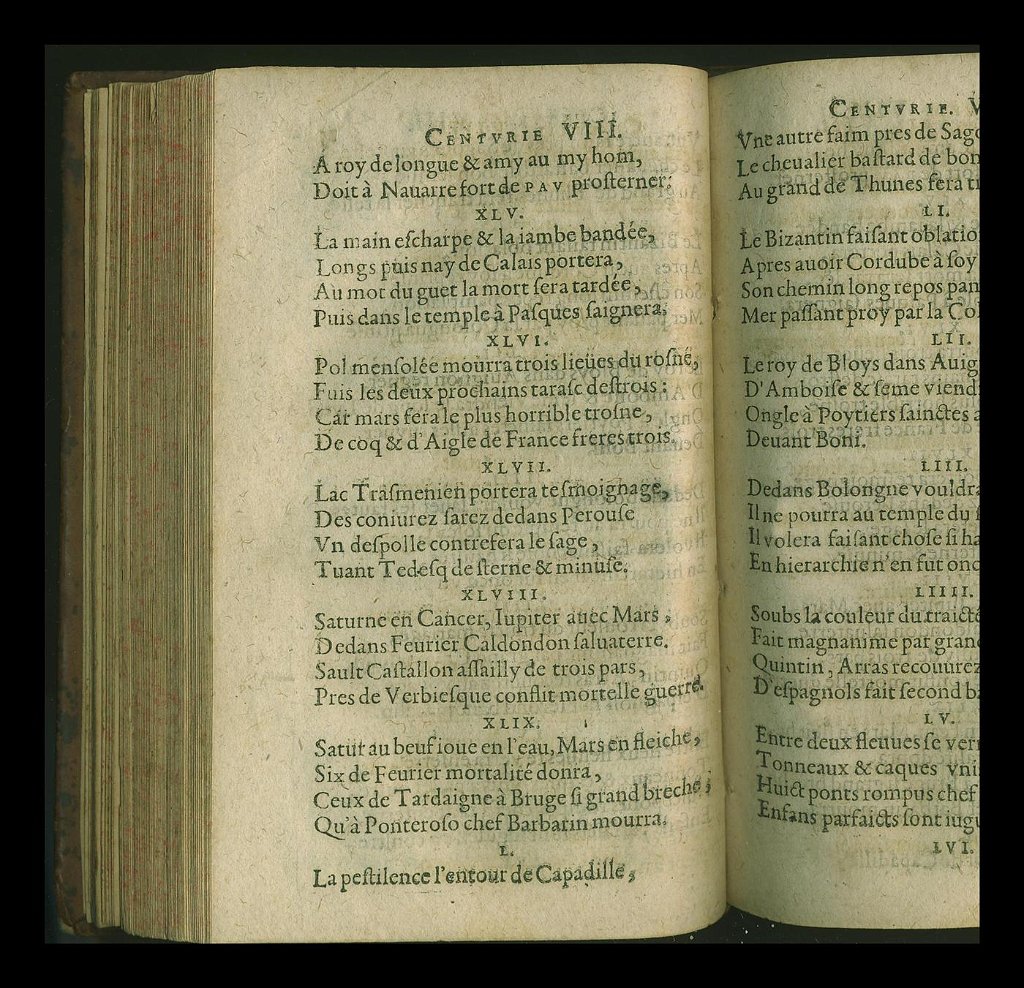 CENTVRIE VIII.
A roy de longue & amy au my hom,
Doit à Nauarre fort de PAV prosterner;
XLV.
La main eſcharpe & la iambe bandée,
Longs puis nay de Calais portera,
Au mot du guet la mort ſera tardée,
Puis dans le temple à Paſques ſaignera.
XLVI.
Pol menſolée mourra trois lieües du roſne,
Fuis les deux prochains taraſc deſtrois:
Car mars fera le plus horrible troſne,
De coq & d'Aigle de France freres trois.
XLVII.
Lac Traſmenien portera teſmoignage,
Des coniurez ſarez dedans Perouſe
Vn deſpolle contrefera le ſage,
Tuant Tedeſq de ſterne & minuſe.
XLVIII.
Saturne en Cancer, Iupiter auec Mars,
Dedans Feurier Caldondon ſaluaterre.
Sault Caſtallon aſſailly de trois pars,
Pres de Verbieſque conflit mortelle guerre.
XLIX.
Satur au beuf ioue en l'eau, Mars en fleiche,
Six de Feurier mortalité donra,
Ceux de Tardaigne à Bruge ſi grand breche,
Qu'à Ponteroſo chef Barbarin mourra.
L.
La peſtilence l'entour de Capadille,
CENTVRIE. V
Vne autre faim pres de Sag
Le cheualier baſtard de bon
Au grand de Thunes fera
LI.
Le Bizantin faiſant oblatio
Apres auoir Cordube à ſoy
Son chemin long repos pan
Mer paſſant proy par la
LII.
Le roy de Bloys dans Auig
D'Amboiſe & ſeme viend
Ongle à Poytiers ſainctes
Deuant Boni.
LIII.
Dedans Bolongne vouldra
Il ne pourra au temple du
Il volera faiſant choſe ſi ha
En hierarchie n'en fut onc
LIIII.
Soubs la couleur du traicté
Fait magnanime par gran
Quintin, Arras recouurez
D'eſpagnols fait ſecond
LV.
Entre deux fleuues ſe ver
Tonneaux & caques vni
Huict ponts rompus chef
Enfans parfaicts ſont iugu
LVI.